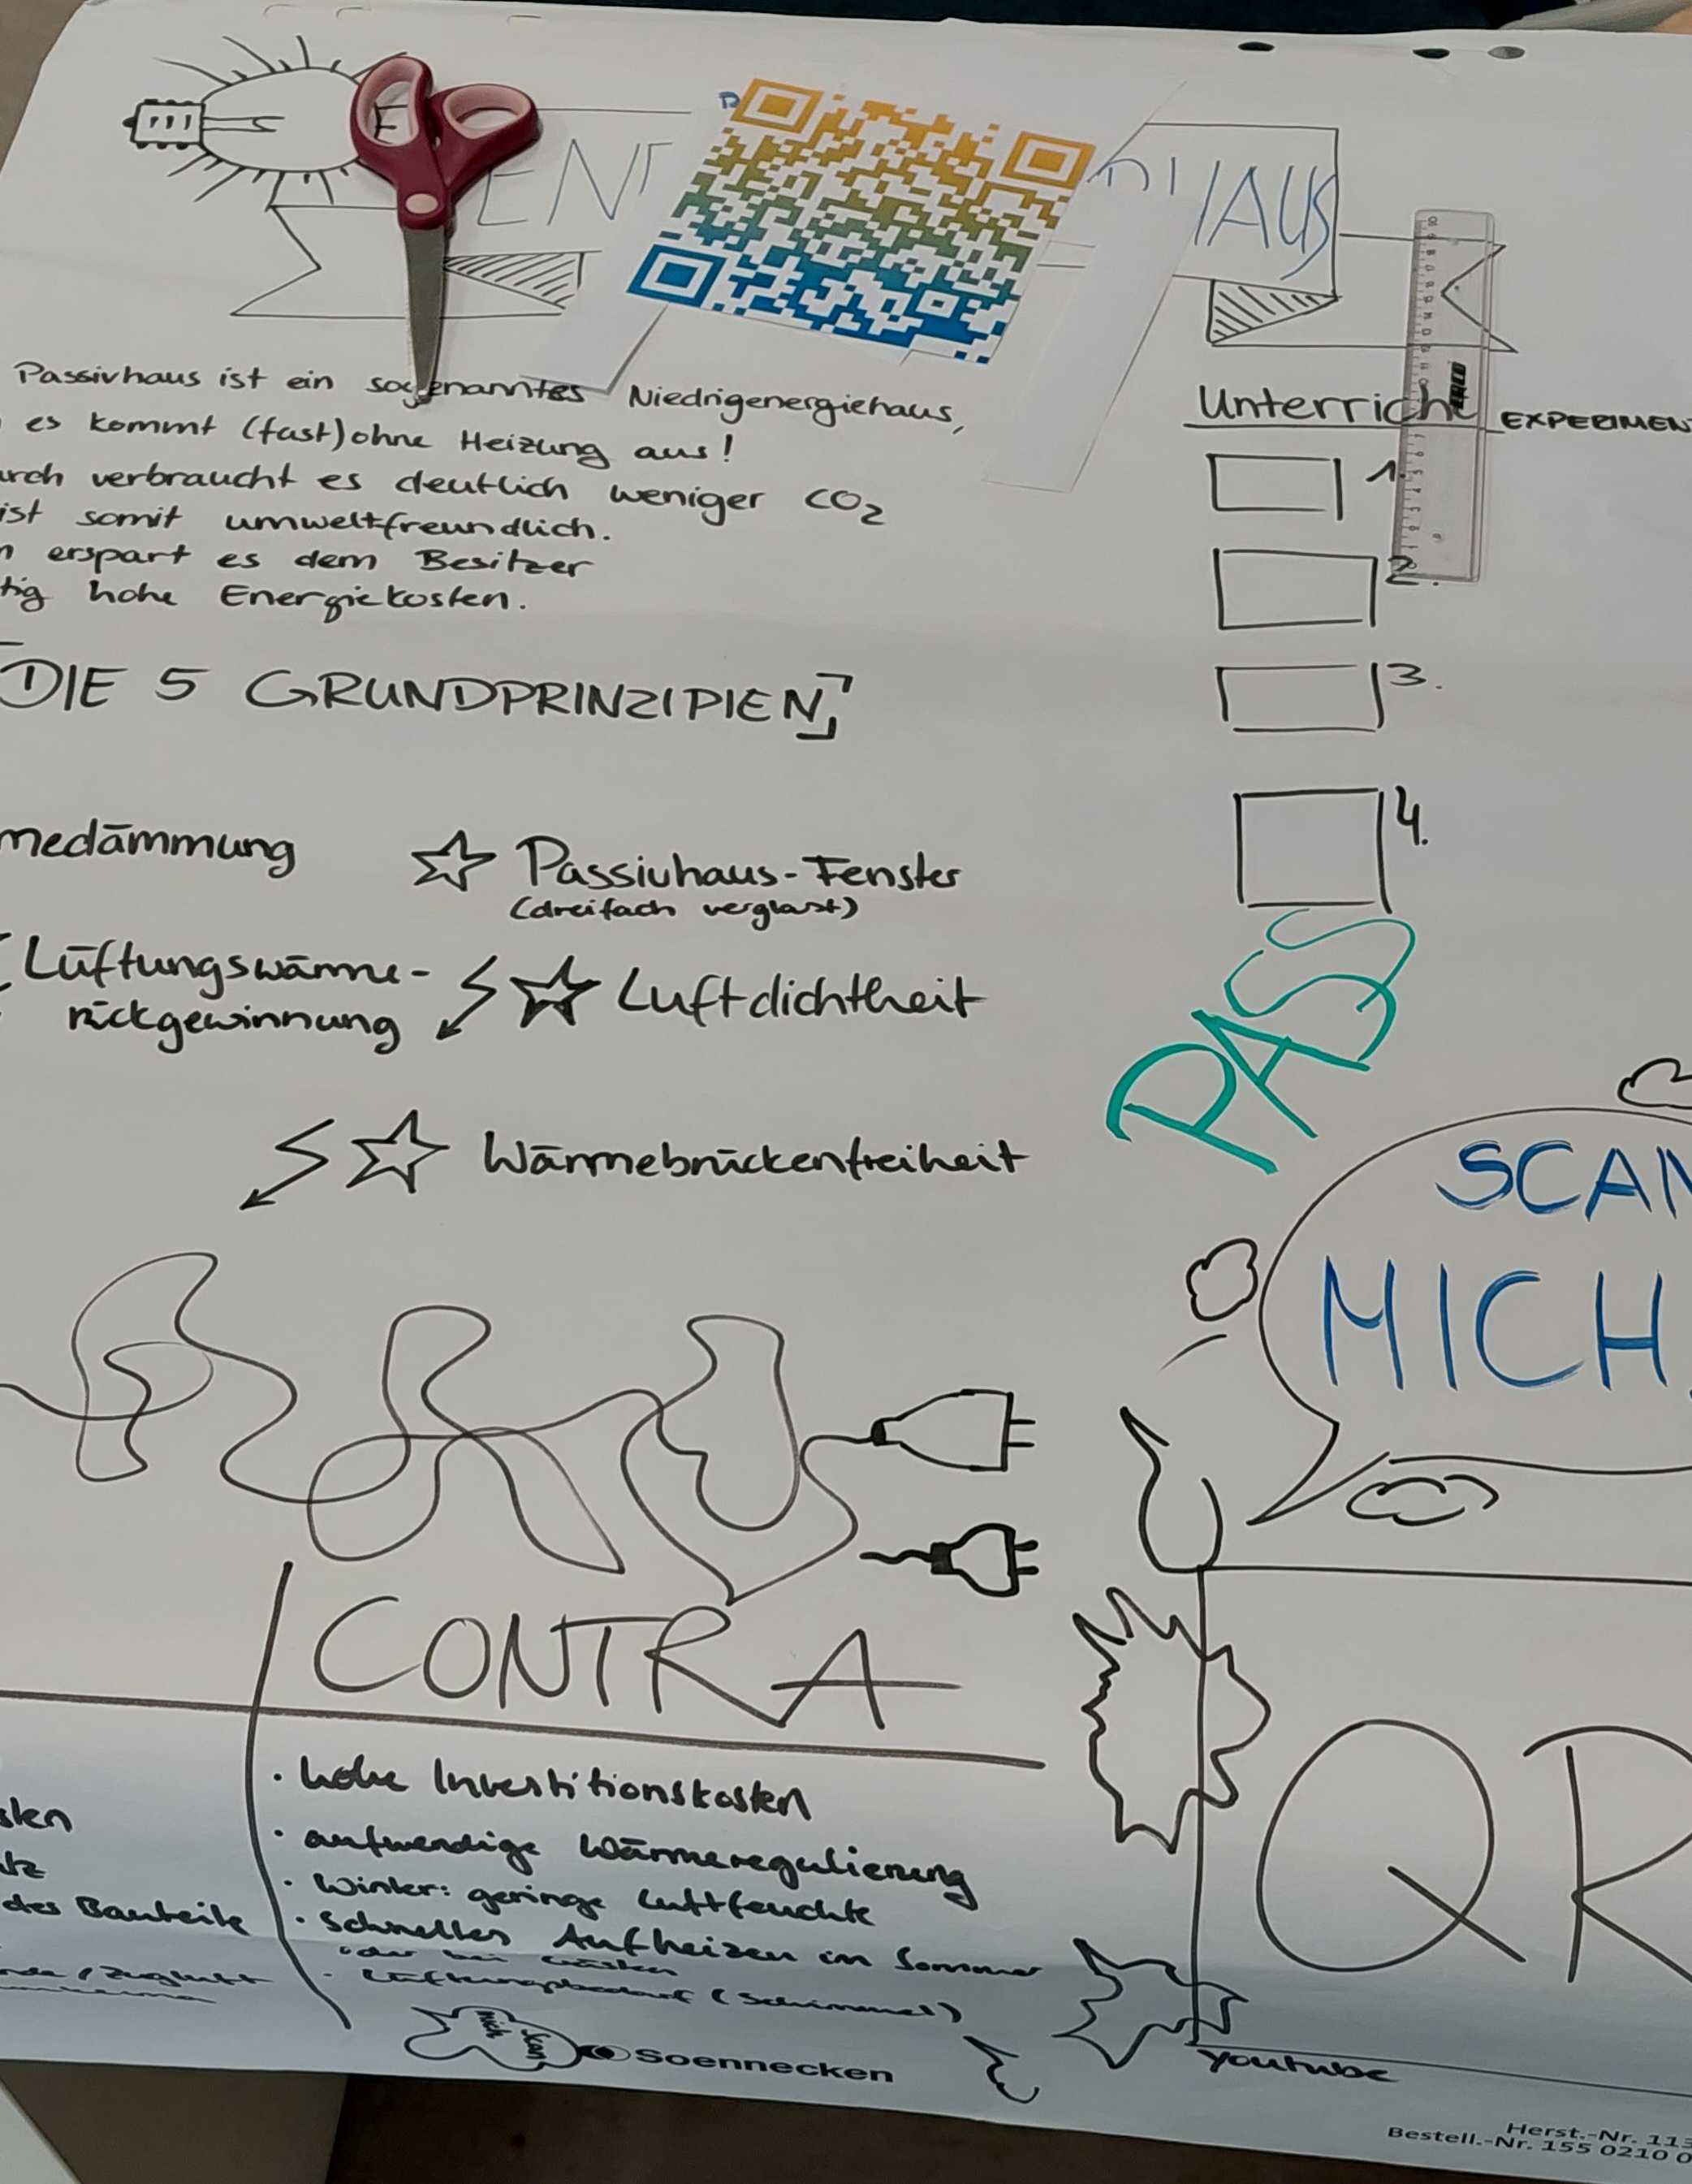 EN HAUS
Passivhaus ist ein sogenanntes Niedrigenergiehaus,
es kommt (fast) ohne Heizung aus!
urch verbraucht es deutlich weniger CO2
ist somit umweltfreundlich.
n erspart es dem Besitzer
tig hohe Energiekosten.
Unterrich EXPERIMEN
1.
2.
3.
4.
DIE 5 GRUNDPRINZIPIEN
medämmung
Passivhaus-Fenster
(dreifach verglast)
Lüftungswärme-
rückgewinnung
Luftdichtheit
Wärmebrückenfreiheit
PASS
SCAN
MICH
CONTRA
· hohe Investitionskosten
· aufwendige Wärmeregulierung
· Winter: geringe Luftfeuchte
· Schnelles Aufheizen im Sommer
oder bei Gästen
· Lüftungsbedarf (Schimmel)
sten
tz
des Bauteile
/ Zugluft
QR
Scan
mich
Soennecken
youtube
Herst.-Nr. 113
Bestell.-Nr. 155 0210 0